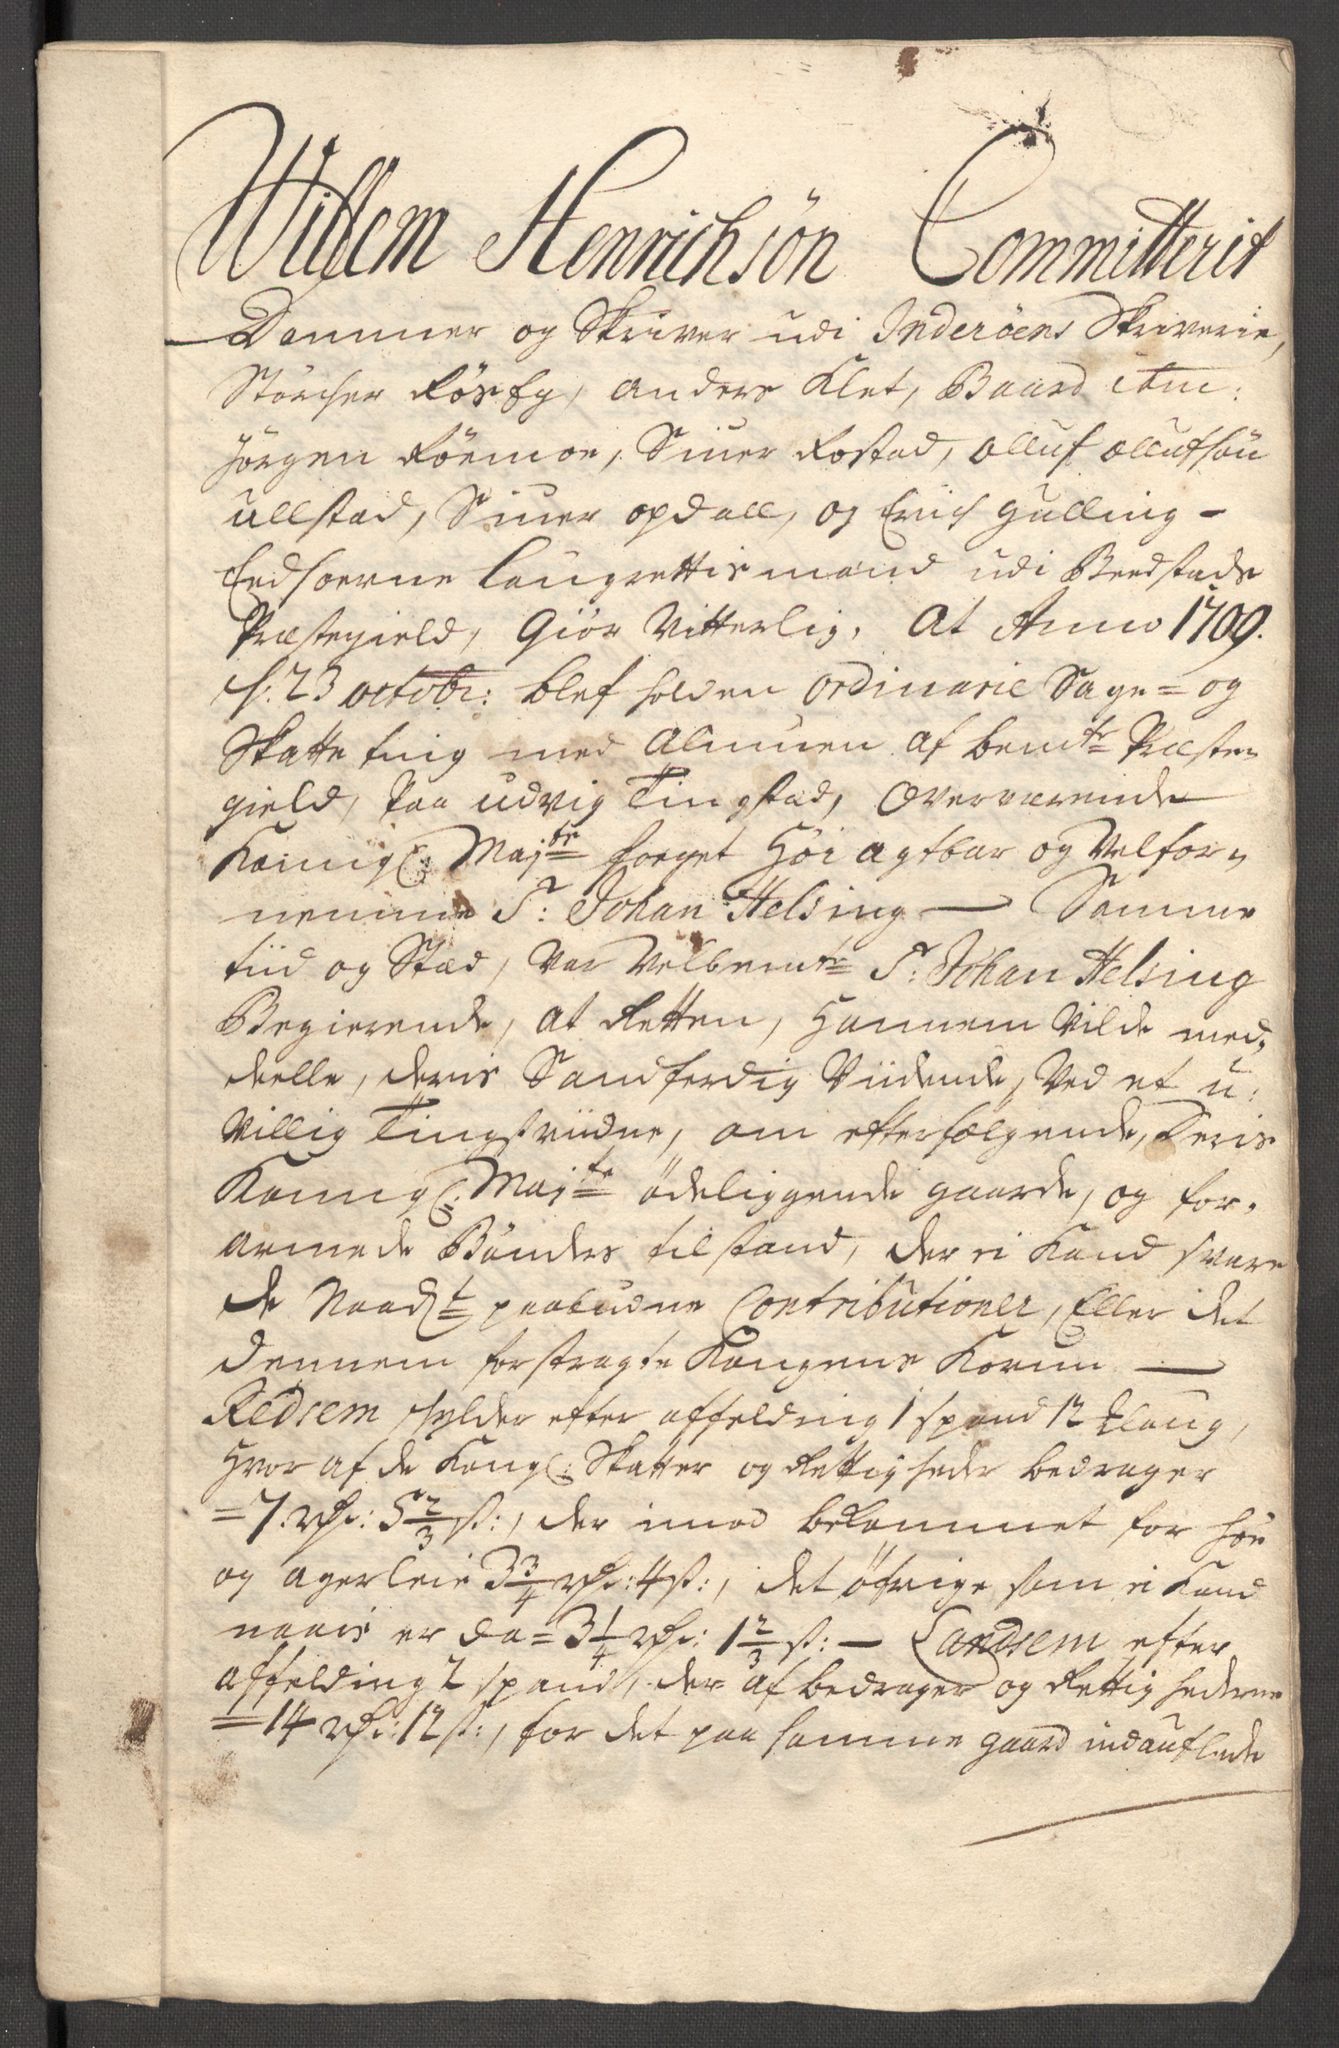 Willem Henrichsön Committerit
Dommer og Skriver udi Inderöens Skriverie,
Störcher Rösteg, Anders Klet, Baard ibm:
Jörgen Röemoe, Siuer Rostad, Olluf Ollufsön
Ullstad, Siuer Opdall, og Erich Gulling –
Eedsoerne Laugrettismænd udi Beedstads
Præstegield, Giör Vitterlig, At Anno 1709.
d: 23 octobr: blef holden ordinarie Sage= og
Skatte ting med Almuen af bemte Præste,
gield, paa Udvig Tingstad, Overværende
Kongl: Maj:ts foeget Höi agtbar og Velfor,
nemme Sr: Johan Helsing — Samme
tiid og Stæd, Var Velbemte Sr: Johan Helsing
Begierende, at Retten, Hannem Vilde med,
deelle, deris Sandferdig Viidende, Ved et u,
Villig Tingsviidne, om efterfölgende, Deris
Kongl: Maj:ts ödeliggende gaarde, og for,
armede Bönders tilstand, der ei Kand svare
de Naadt paabudne Contributioner, Eller det
dennem forstragte Kongens Korn —
Redsem skylder efter affelding 1 spand 12 klaug,
Hvor af de Kongl: Skatter og Rettigheder bedrager
= 7. rdr: 5 2/3 s:, der imod bekommet for höe
og agerleie 3 3/4 rdr: 4 s:, det öfrige som ei Kand
naaes er da = 3 1/4 rdr: 1 2/3 s: — Landsem efter
affelding 2 spand, der af bedrager og Rettighederne
= 14 rdr: 12 s:, for det paa samme gaard indauflede